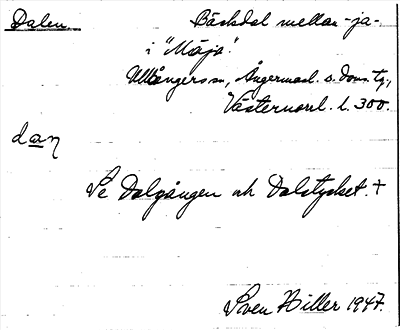 Dalen Bäckdal mellan -ja-
i "Mäja".
Ullångers sn, Ångermanl. s. doms. tg.,
Västernorrl. l. 300.
dan
Se Dalgången och Dalstycket. +
Sven Hiller 1947.